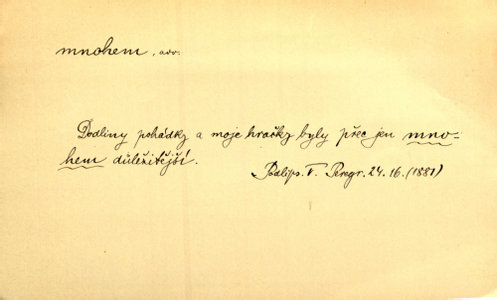 mnohem, adv.
Dodliny pohádky a moje hračky byly přec jen mno-
hem důležitější.
Podlip. F. Peregr. 24. 16. (1881)